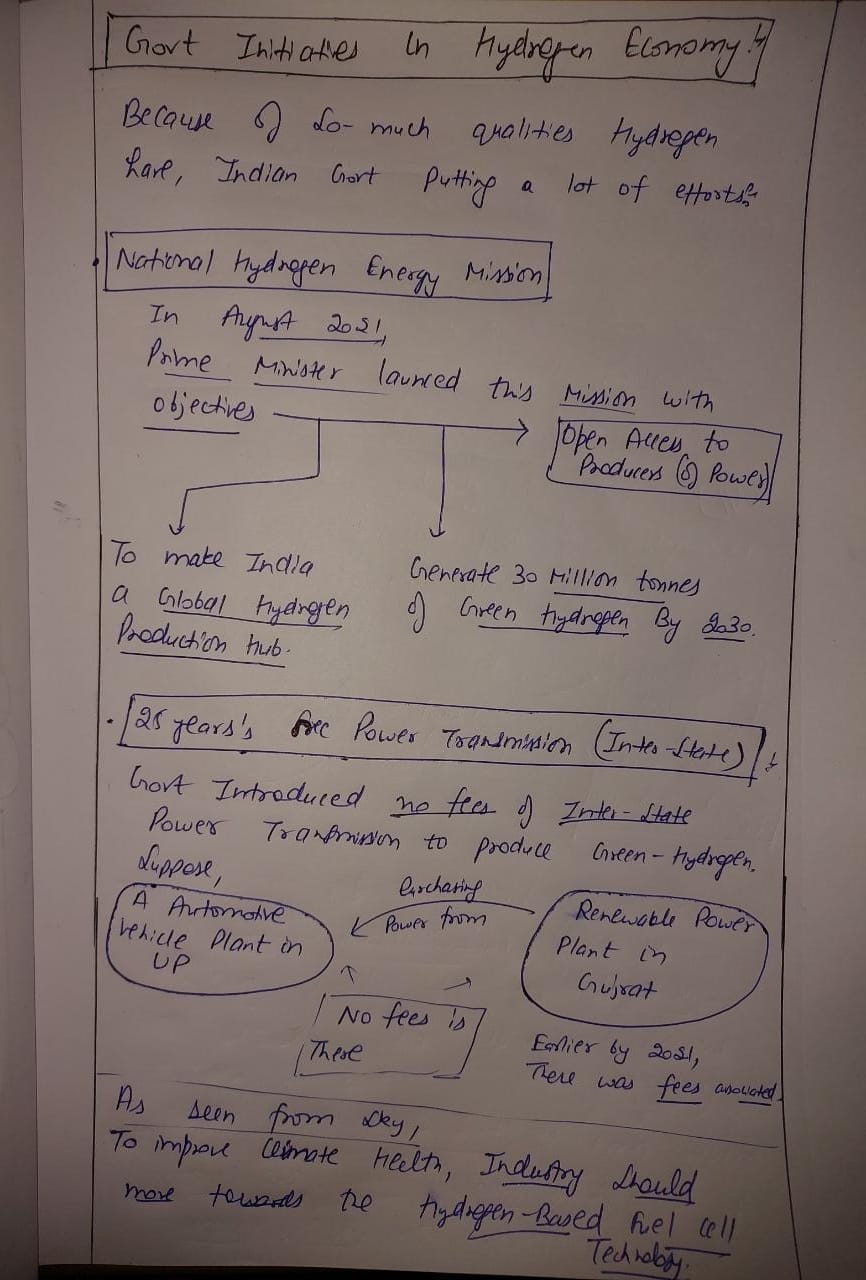 Govt Initiatives In Hydrogen Economy :-
Because of So-much qualities Hydrogen
have, Indian Govt Putting a lot of efforts:-
• National Hydrogen Energy Mission
In August 2021,
Prime Minister launced this Mission with
objectives
Open Access to
Producers of Power
To make India
a Global Hydrogen
Production hub.
Generate 30 Million tonnes
of Green Hydrogen By 2030.
• 25 years's free Power Transmission (Inter-State) :-
Govt Introduced no fees of Inter-State
Power Transmission to produce Green-Hydrogen.
Suppose,
A Automotive
Vehicle Plant in
UP
Purchasing
Power from
Renewable Power
Plant in
Gujrat
No fees is
There
Earlier by 2021,
There was fees associated.
As seen from sky,
To improve Climate Health, Industry should
move towards the Hydrogen-Based Fuel Cell
Technology.